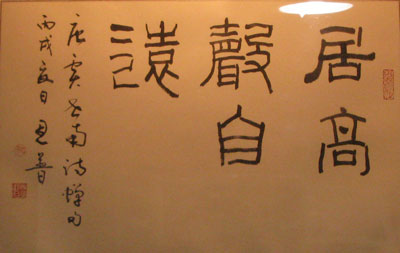 居高
聲自
遠
唐虞世南詩蟬句
丙戌夏日